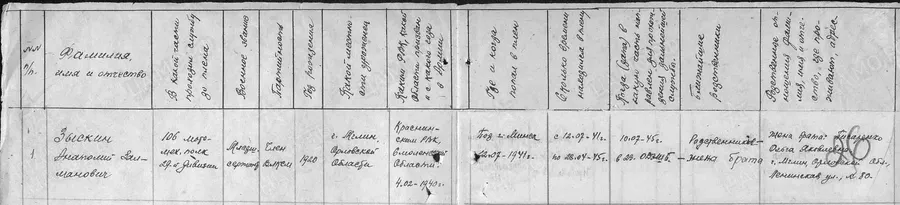 NN
п/п.
Фамилия,
имя и отчество
В какой части
проходил службу
до плена
Воинское звание
Партийность
Год рождения
Какой области
Каким РВК, какой
области призван
и с какого года
в Армии
Где и когда
попал в плен
Сколько времени
находился в плену
Когда (дата) в
какую часть на-
правлен для прохож-
дения дальнейшей
службы.
Ближайшие
родственники
1
1
Зыскин
Анатолий Зал-
манович
106 мото-
мех. полк
29-й дивизии
Младш.
сержант
Член
ВЛКСМ
1920
г. Мглин
Орловской
Области
Краснин-
ским РВК,
Смоленской
Области.
4.02-1940г.
Под г. Минск
12.07-1941г.
с 12.07-41г.
по 28.04-45г.
10.07-45г.
Родственников-
- жена брата
Жена брата
Ольга Яковлевна
г. Мглин, Орловской Обл.,
Ленинская ул., N 80.